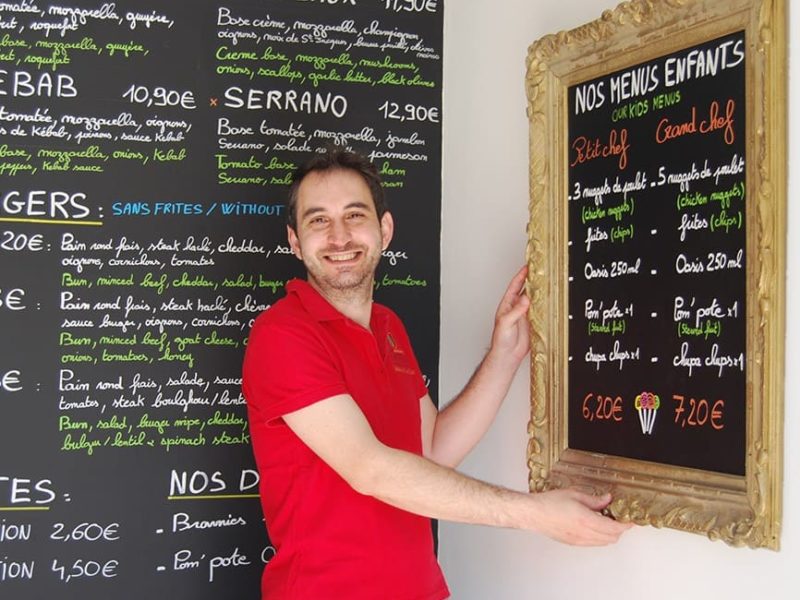 11,90€
tomatée, mozzarella,
Base, mozzarella, guyère,
Base crème, mozzarella, champignon
oignons, noix de St Jacques, beurre
Creme base, mozzarella, mushrooms,
onions, scallops, garlic butter, black olives
KEBAB 10,90€
tomatée, mozzarella, oignons,
de Kébab, poivrons, sauce Kebab
base, mozzarella, onions, Kebab
Kebab sauce
× SERRANO 12,90€
Base tomatée, mozzarella, jambon
Serrano, salade parmesan
Tomato base
Serrano, salad parmesan
GERS : SANS FRITES / WITHOUT
20€ : Pain rond frais, steak haché, cheddar,
oignons, cornichons, tomates
Bun, minced beef, cheddar, salad, burger
tomatoes
€ : Pain rond frais, steak haché,
sauce burger, oignons, cornichons,
Bun, minced beef, goat cheese,
onions, tomatoes, honey
€ : Pain rond frais, salade, sauce
tomates, steak boulghour/lentil
Bun, salad, burger sauce, cheddar,
bulgur/lentil & spinach steak
TES :
ION 2,60€
ION 4,50€
NOS D
- Brownies
- Pom'pote
NOS MENUS ENFANTS
OUR KIDS MENUS
Petit chef
- 3 nuggets de poulet
(chicken nuggets)
- frites (chips)
- Oasis 250 ml
- Pom'pote x1
(Stewed fruit)
- chupa chups x1
6,20€
Grand chef
- 5 nuggets de poulet
(chicken nuggets)
- frites (chips)
- Oasis 250 ml
- Pom'pote x1
(Stewed fruit)
- chupa chups x1
7,20€